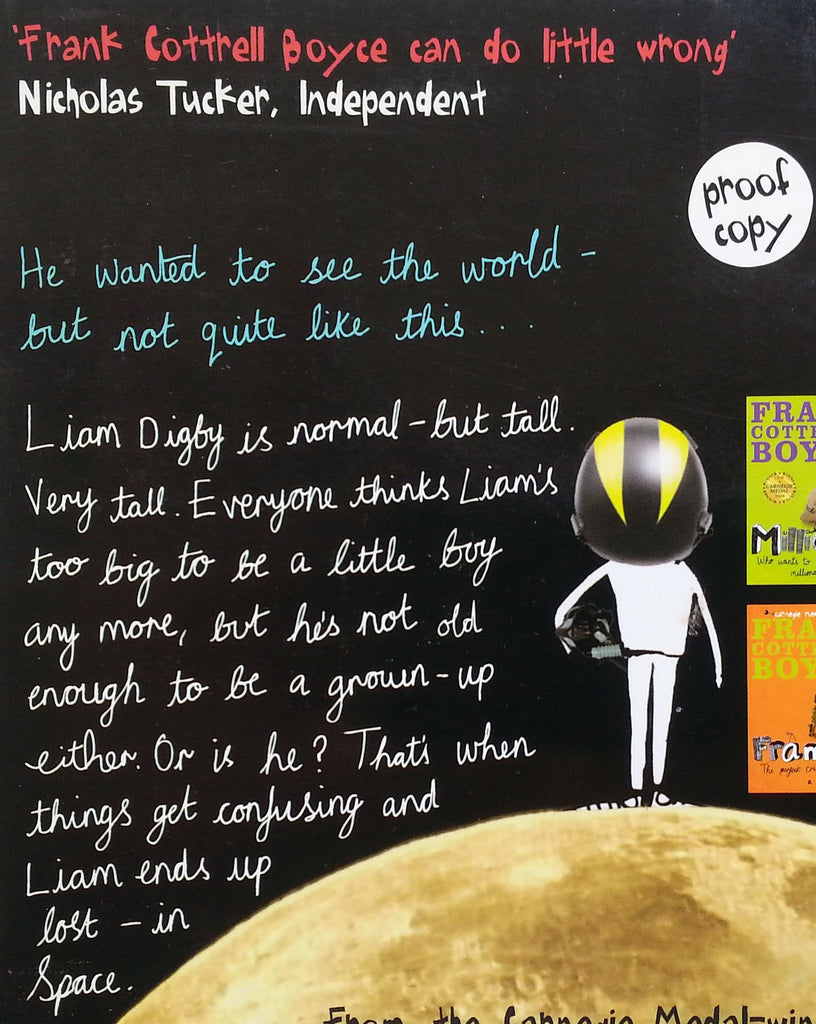 'Frank Cottrell Boyce can do little wrong'
Nicholas Tucker, Independent
proof
copy
He wanted to see the world -
but not quite like this...
Liam Digby is normal - but tall.
Very tall. Everyone thinks Liam's
too big to be a little boy
any more, but he's not old
enough to be a grown-up
either. Or is he? That's when
things get confusing and
Liam ends up
lost - in
Space.
FRA
COTT
BOY
CARNEGIE
MEDAL
Milli
Who wants to
FRA
COTT
BOY
Fram
The perfect
From the Carnegie Medal-win